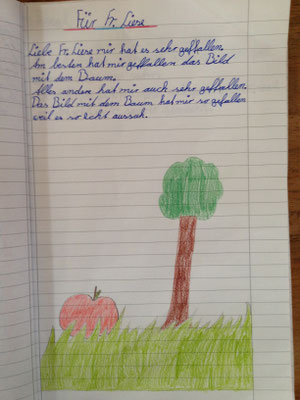 Für Fr. Liese
Liebe Fr. Liese mir hat es sehr geffallen.
Am besten hat mir geffallen das Bild
mit dem Daum.
Alles andere hat mir auch sehr geffallen.
Das Bild mit dem Baum hat mir so gefallen
weil es so echt aussah.